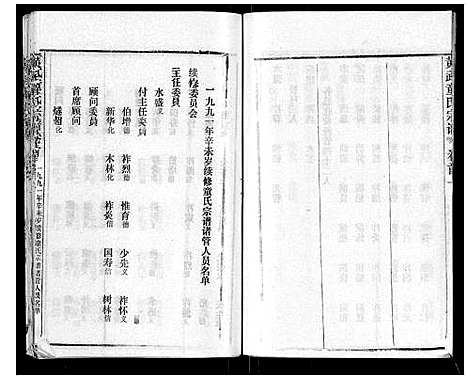 黄武童氏宗谱 卷首一
一九九一年辛未岁续修童氏宗谱诸管人员名单
续修委员会
主任委员
永盛义
付主任委员
伯增德 祚烈德 惟育德 少先义 祚怀义
新华化 木林化 祚炎信 国寿信 树林信
顾问委员
首席顾问
燧朝化
一九九一年辛未岁续修童氏宗谱诸管人员名单